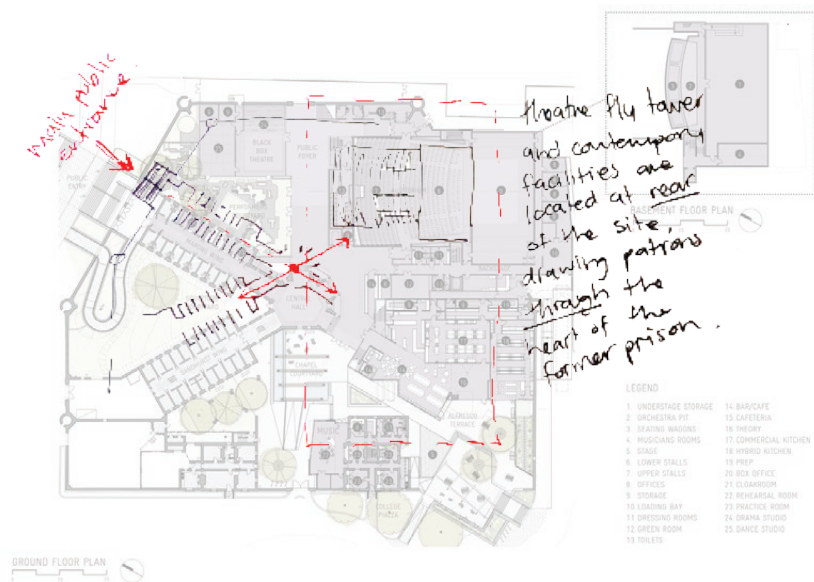 main public
entrance.
theatre fly tower
and contempory
facilities are
located at rear
of the site,
drawing patrons
through the
heart of the
former prison.
PUBLIC
ENTRY
BLACK
BOX
THEATRE
PUBLIC
FOYER
CENTRAL
HALL
CHAPEL
TERRACE
COLLEGE
PLAZA
BASEMENT FLOOR PLAN
GROUND FLOOR PLAN
LEGEND
1. UNDERSTAGE STORAGE
2 ORCHESTRA PIT
3 SEATING WAGONS
4 MUSICIANS ROOMS
5 STAGE
6 LOWER STALLS
7. UPPER STALLS
8 OFFICES
9 STORAGE
10 LOADING BAY
11 DRESSING ROOMS
12 GREEN ROOM
13 TOILETS
14 BAR/CAFE
15 CAFETERIA
16 THEORY
17 COMMERCIAL KITCHEN
18 HYBRID KITCHEN
19 PREP
20 BOX OFFICE
21 CLOAKROOM
22 REHEARSAL ROOM
23 PRACTICE ROOM
24 DRAMA STUDIO
25 DANCE STUDIO